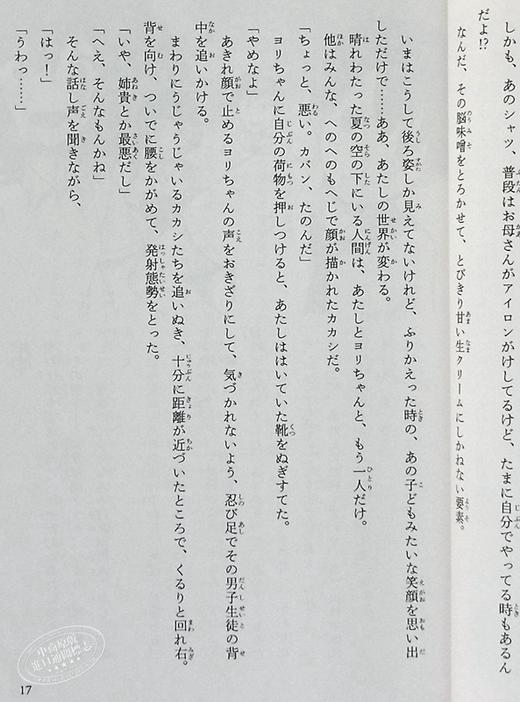 しかも、あのシャツ、普段はお母さんがアイロンがけしてるけど、たまに自分でやってる時もあるん
だよ!?
なんだ、その脳味噌をとろかせて、とびきり甘い生クリームにしかねない要素。
いまはこうして後ろ姿しか見えてないけれど、ふりかえった時の、あの子どもみたいな笑顔を思い出
しただけで……ああ、あたしの世界が変わる。
晴れわたった夏の空の下にいる人間は、あたしとヨリちゃんと、もう一人だけ。
他はみんな、へのへのもへじで顔が描かれたカカシだ。
「ちょっと、悪い。カバン、たのんだ」
ヨリちゃんに自分の荷物を押しつけると、あたしははいていた靴をぬぎすてた。
「やめなよ」
あきれ顔で止めるヨリちゃんの声をおきざりにして、気づかれないよう、忍び足でその男子生徒の背
中を追いかける。
まわりにうじゃうじゃいるカカシたちを追いぬき、十分に距離が近づいたところで、くるりと回れ右。
背を向け、ついでに腰をかがめて、発射態勢をとった。
「いや、姉貴とか最悪だし」
「へえ、そんなもんかね」
そんな話し声を聞きながら、
「はっ!」
「うわっ……」
17
中商原版
进口原版图书